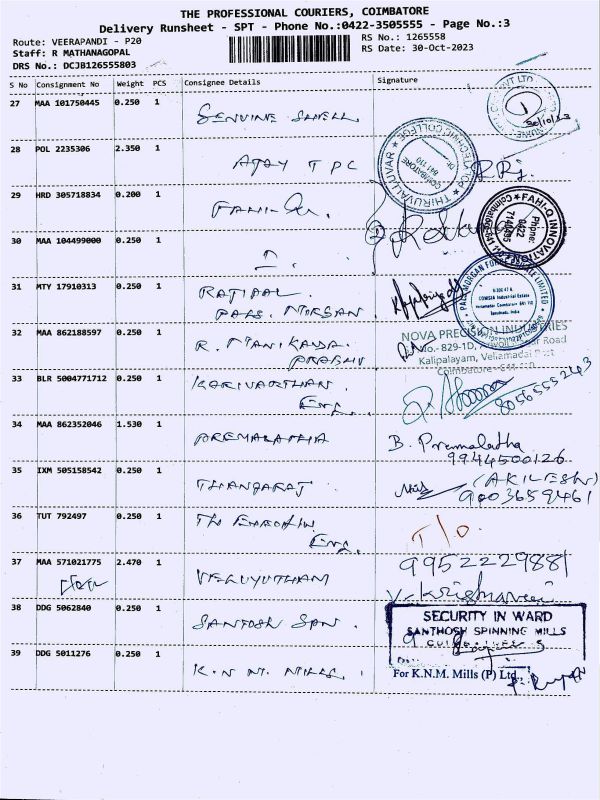 THE PROFESSIONAL COURIERS, COIMBATORE
Delivery Runsheet - SPT - Phone No.:0422-3505555 - Page No.:3
Route: VEERAPANDI - P20
RS No.: 1265558
Staff: R MATHANAGOPAL
RS Date: 30-Oct-2023
DRS No.: DCJB126555803
S No Consignment No Weight PCS Consignee Details Signature
27 MAA 101750445 0.250 1
30/10/23
28 POL 2235306 2.350 1 AJAY T P C
THIRUVALLUVAR POLYTECHNIC COLLEGE
COIMBATORE
641 110
29 HRD 305718834 0.200 1
FAHI-Q INNOVATION
Phone:
0422
Coimbatore-641
30 MAA 104499000 0.250 1
31 MTY 17910313 0.250 1
PRIVATE LIMITED
COINDIA Industrial Estate
Coimbatore 641 110
32 MAA 862188597 0.250 1 R. MANIKANDA
PRABHU
NOVA PRECISION INDUSTRIES
Road
Kalipalayam, Vellamadai Post
Coimbatore - 641 110
33 BLR 5004771712 0.250 1 KARIVARTHAN
Eng.
8056555243
34 MAA 862352046 1.530 1 PREMALATHA
B. Premalatha
9944500126
35 IXM 505158542 0.250 1 THANGARAJ
(AKILESH)
9003659461
36 TUT 792497 0.250 1
Eng.
T/O.
37 MAA 571021775 2.470 1 VELUYUTHAM
9952229881
V. Krishnaveni
38 DDG 5062840 0.250 1 SANTOSH SPN.
SECURITY IN WARD
SANTHOSH SPINNING MILLS
39 DDG 5011276 0.250 1 K.N.M. MILLS.
For K.N.M. Mills (P) Ltd.,